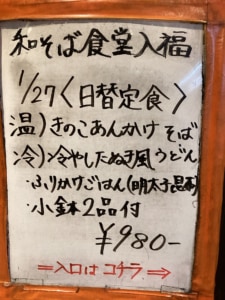 和そば食堂入福
1/27〈日替定食〉
温)きのこあんかけそば
冷)冷やしたぬき風うどん
・ふりかけごはん(明太子昆布)
・小鉢2品付
¥980-
⇒入口はコチラ→